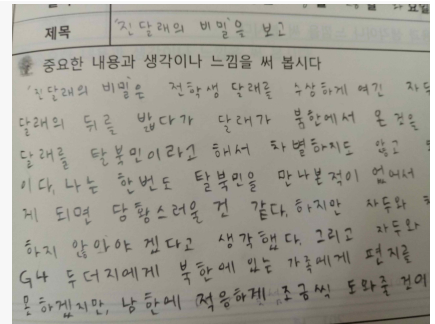 제목 '진달래의 비밀'을 보고
중요한 내용과 생각이나 느낌을 써 봅시다
'진달래의 비밀'은 전학생 달래를 수상하게 여긴 자두
달래의 뒤를 밟다가 달래가 북한에서 온 것을
달래를 탈북민이라고 해서 차별하지도 않고
이다. 나는 한번도 탈북민을 만나본적이 없어서
게 되면 당황스러울 건 같다. 하지만 자두와
하지 않아야 겠다고 생각했다. 그리고 자두와
G4 두더지에게 북한에 있는 가족에게 편지를
못하겠지만, 남한에 적응하게 조금씩 도와줄 것이